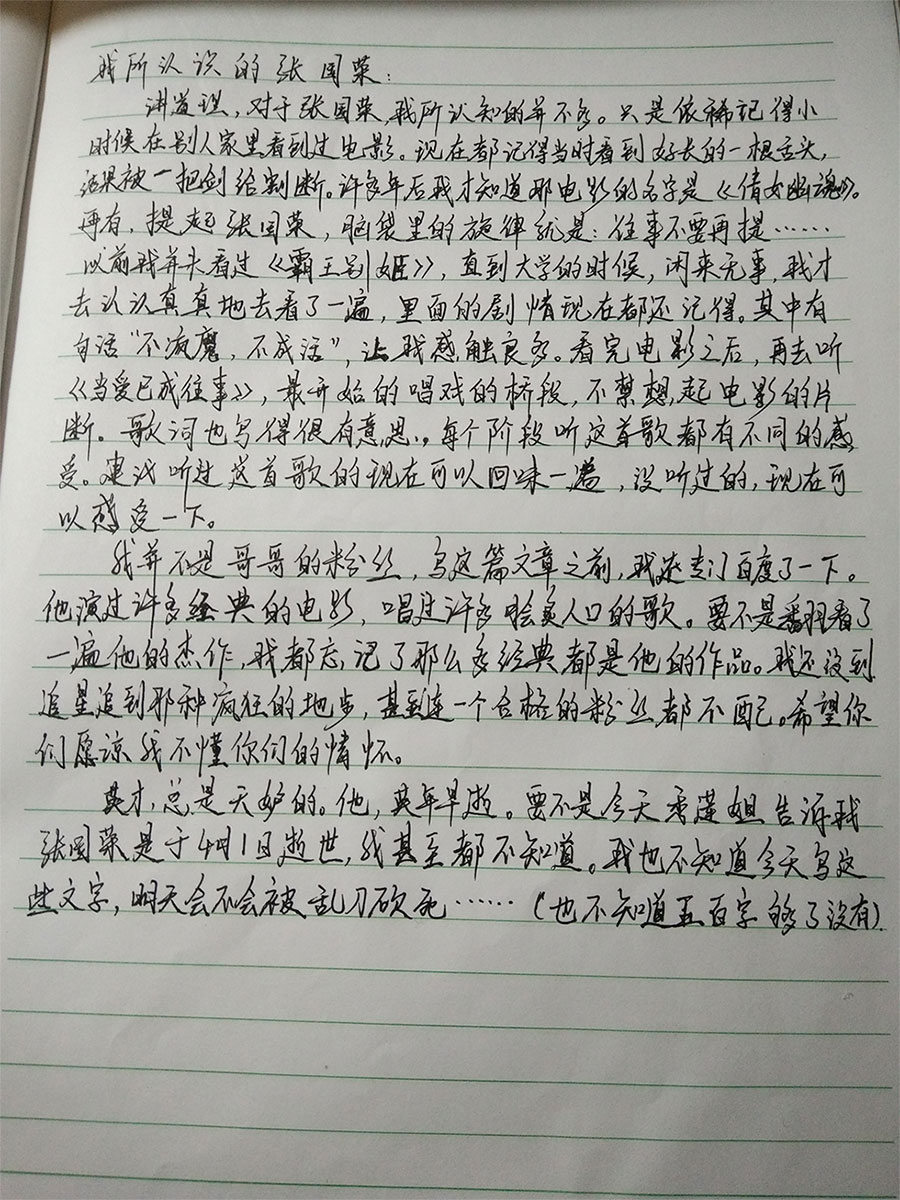 我所认识的张国荣：
讲道理，对于张国荣，我所认知的并不多。只是依稀记得小
时候在别人家里看到过电影。现在都记得当时看到好长的一根舌头，
结果被一把剑给割断。许多年后我才知道那电影的名字是《倩女幽魂》。
再有，提起张国荣，脑袋里的旋律就是：往事不要再提……
以前我并未看过《霸王别姬》，直到大学的时候，闲来无事，我才
去认认真真地去看了一遍，里面的剧情现在都还记得。其中有
句话“不疯魔，不成活”，让我感触良多。看完电影之后，再去听
《当爱已成往事》，最开始的唱戏的桥段，不禁想起电影的片
断。歌词也写得很有意思.。每个阶段听这首歌都有不同的感
受。建议听过这首歌的现在可以回味一遍，没听过的，现在可
以感受一下。
我并不是哥哥的粉丝，写这篇文章之前，我还专门百度了一下。
他演过许多经典的电影，唱过许多脍炙人口的歌。要不是翻看了
一遍他的杰作，我都忘记了那么多经典都是他的作品。我还没到
追星追到那种疯狂的地步，甚至连一个合格的粉丝都不配。希望你
们愿谅我不懂你们的情怀。
英才，总是天妒的。他，英年早逝。要不是今天秀莲姐告诉我
张国荣是于4月1日逝世，我甚至都不知道。我也不知道今天写这
些文字，明天会不会被乱刀砍死……（也不知道五百字够了没有）.